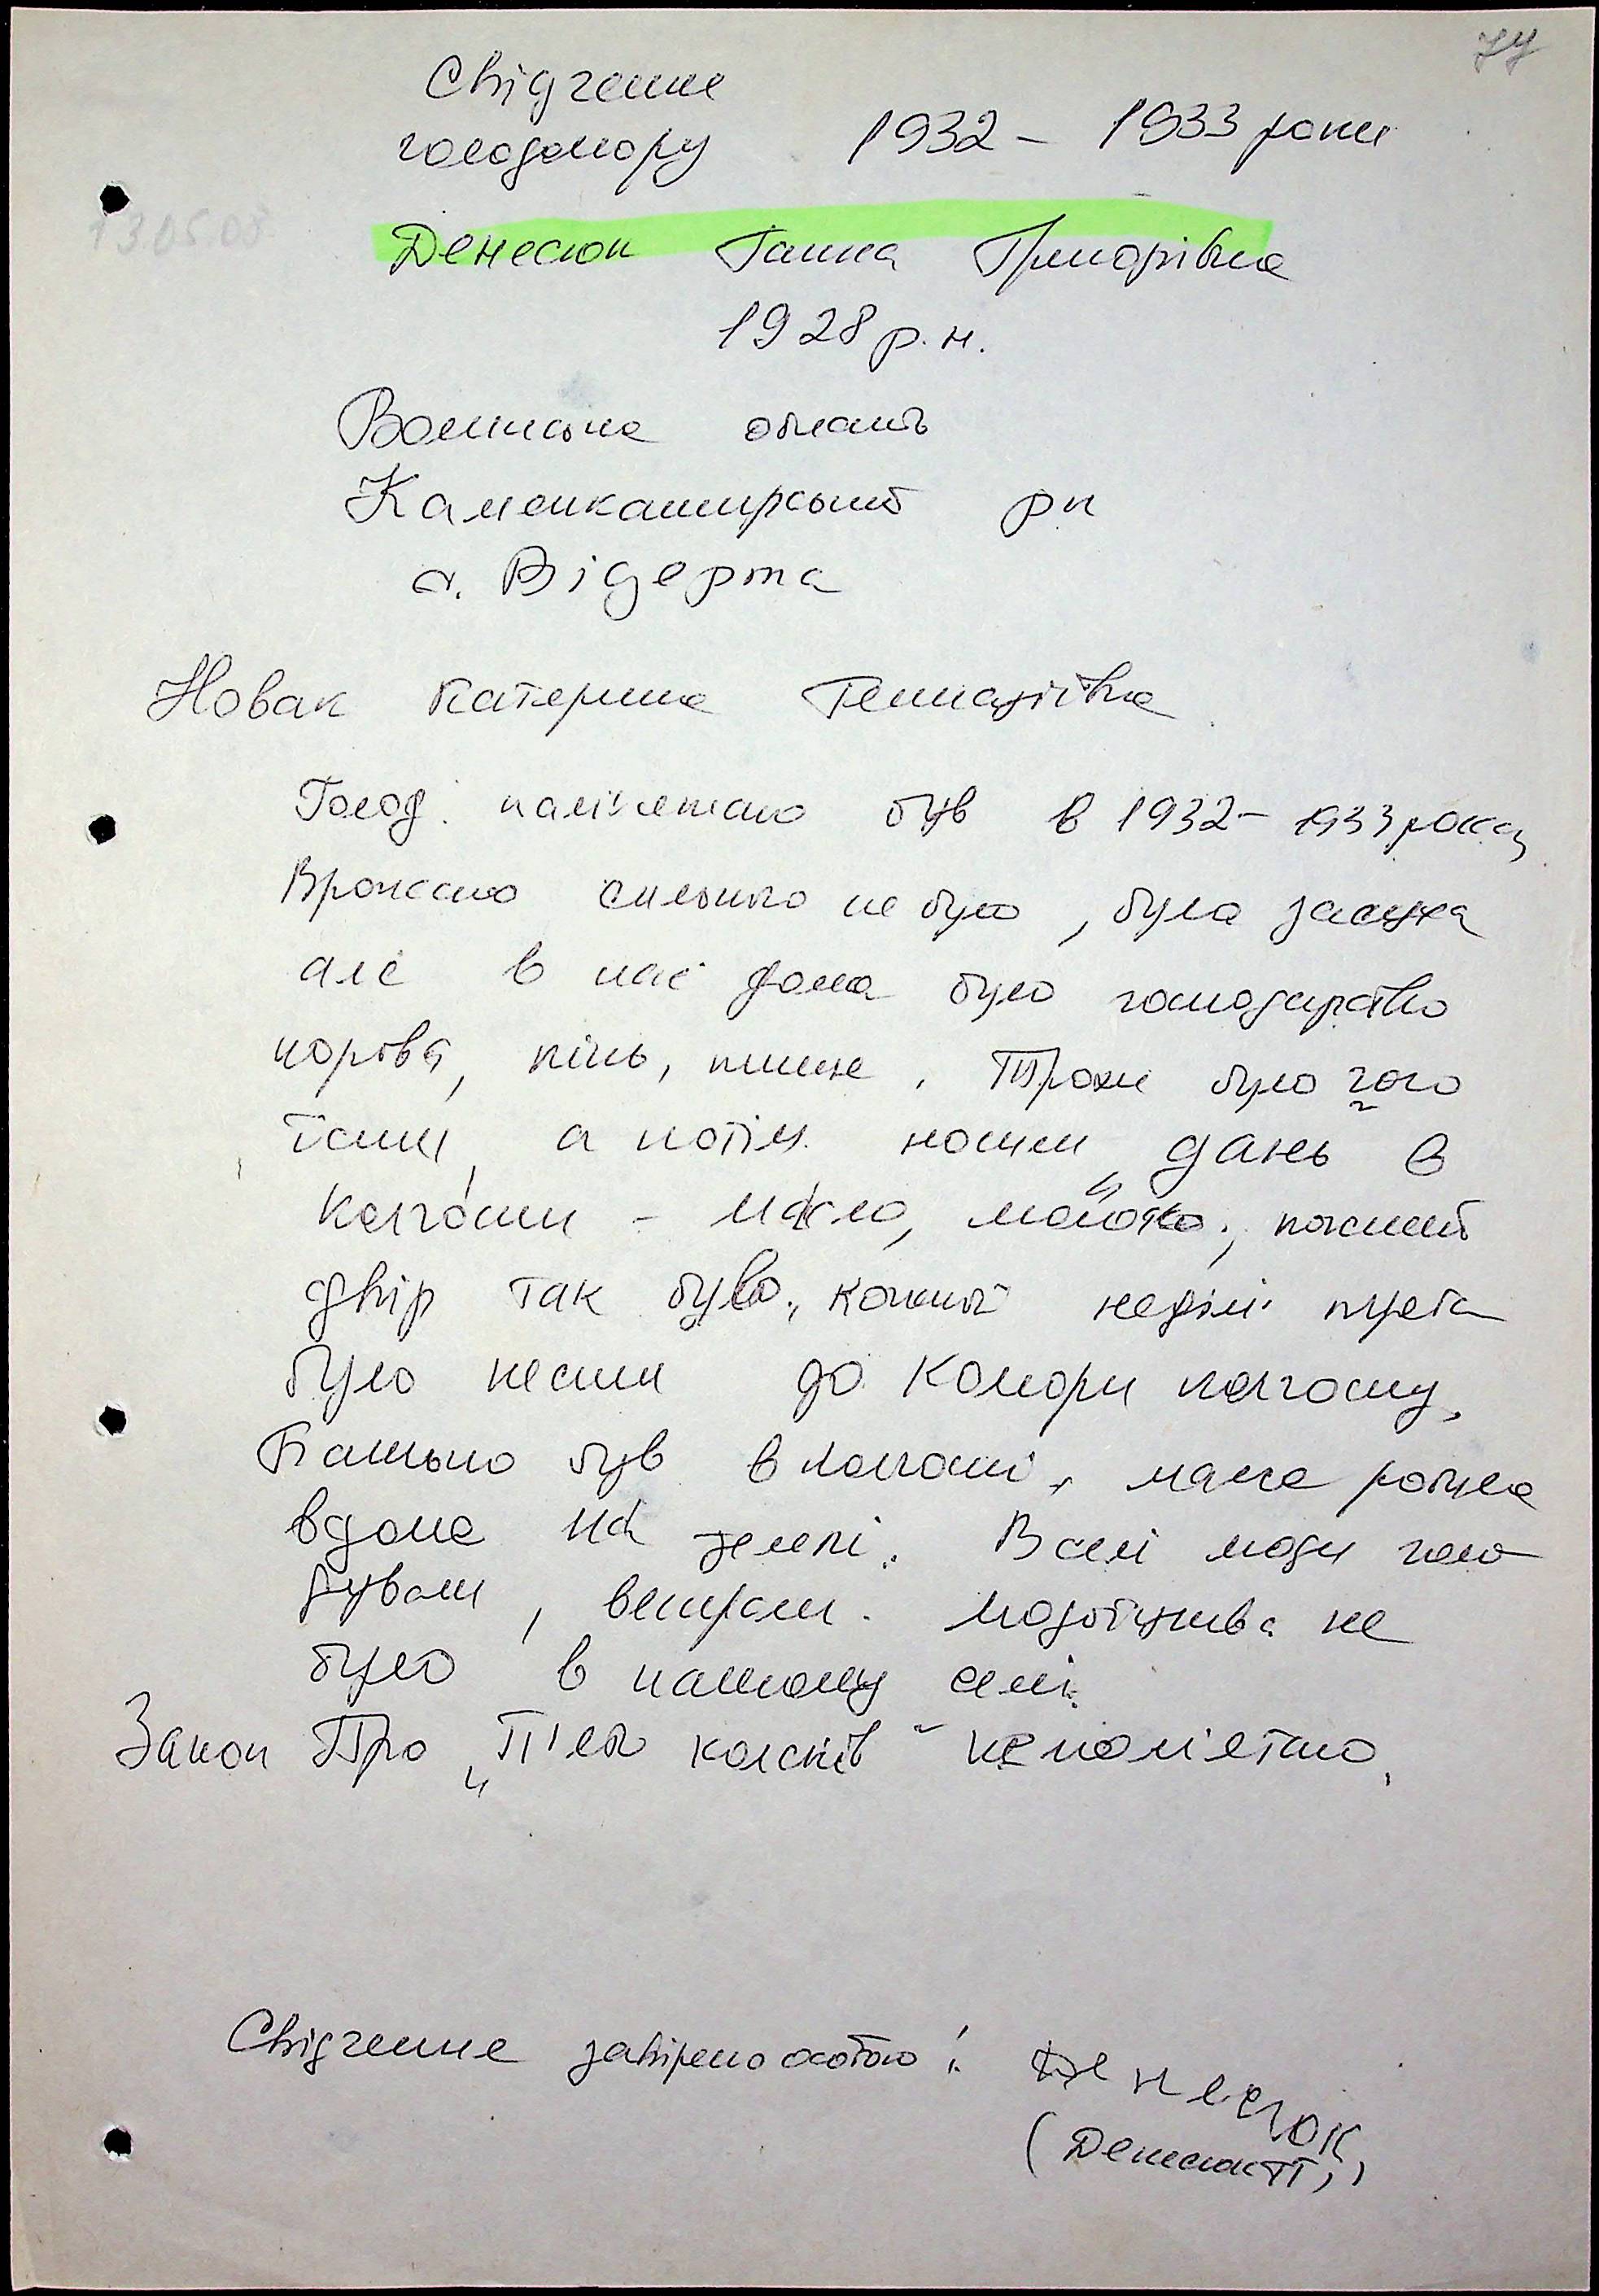 74
Свідчення
голодомору 1932 – 1933 роки
13.05.08
Денесюк Ганна Григорівна
1928 р.н.
Волинська область
Каменкаширський рн
с. Відерта
Новак Катерина Геннадіївна
Голод пам'ятаю був в 1932 – 1933 роках
Врожаю сильного не було, була засуха
але в нас дома було господарство
корова, кінь, пшене. Трохи було чого
їсти, а потім носили „дань" в
колгоспи – масло, молоко, кожний
двір так було, кожної неділі треба
було нести до комори колгоспу,
Батько був в колгоспі, мама робила
вдома на землі. В селі люди голо
дували, вмирали. людоїдства не
було в нашому селі.
Закон Про „П'ять колосків" не пам'ятаю.
Свідчення завірено особою: Денесюк
(Денесюк Г.Г.)